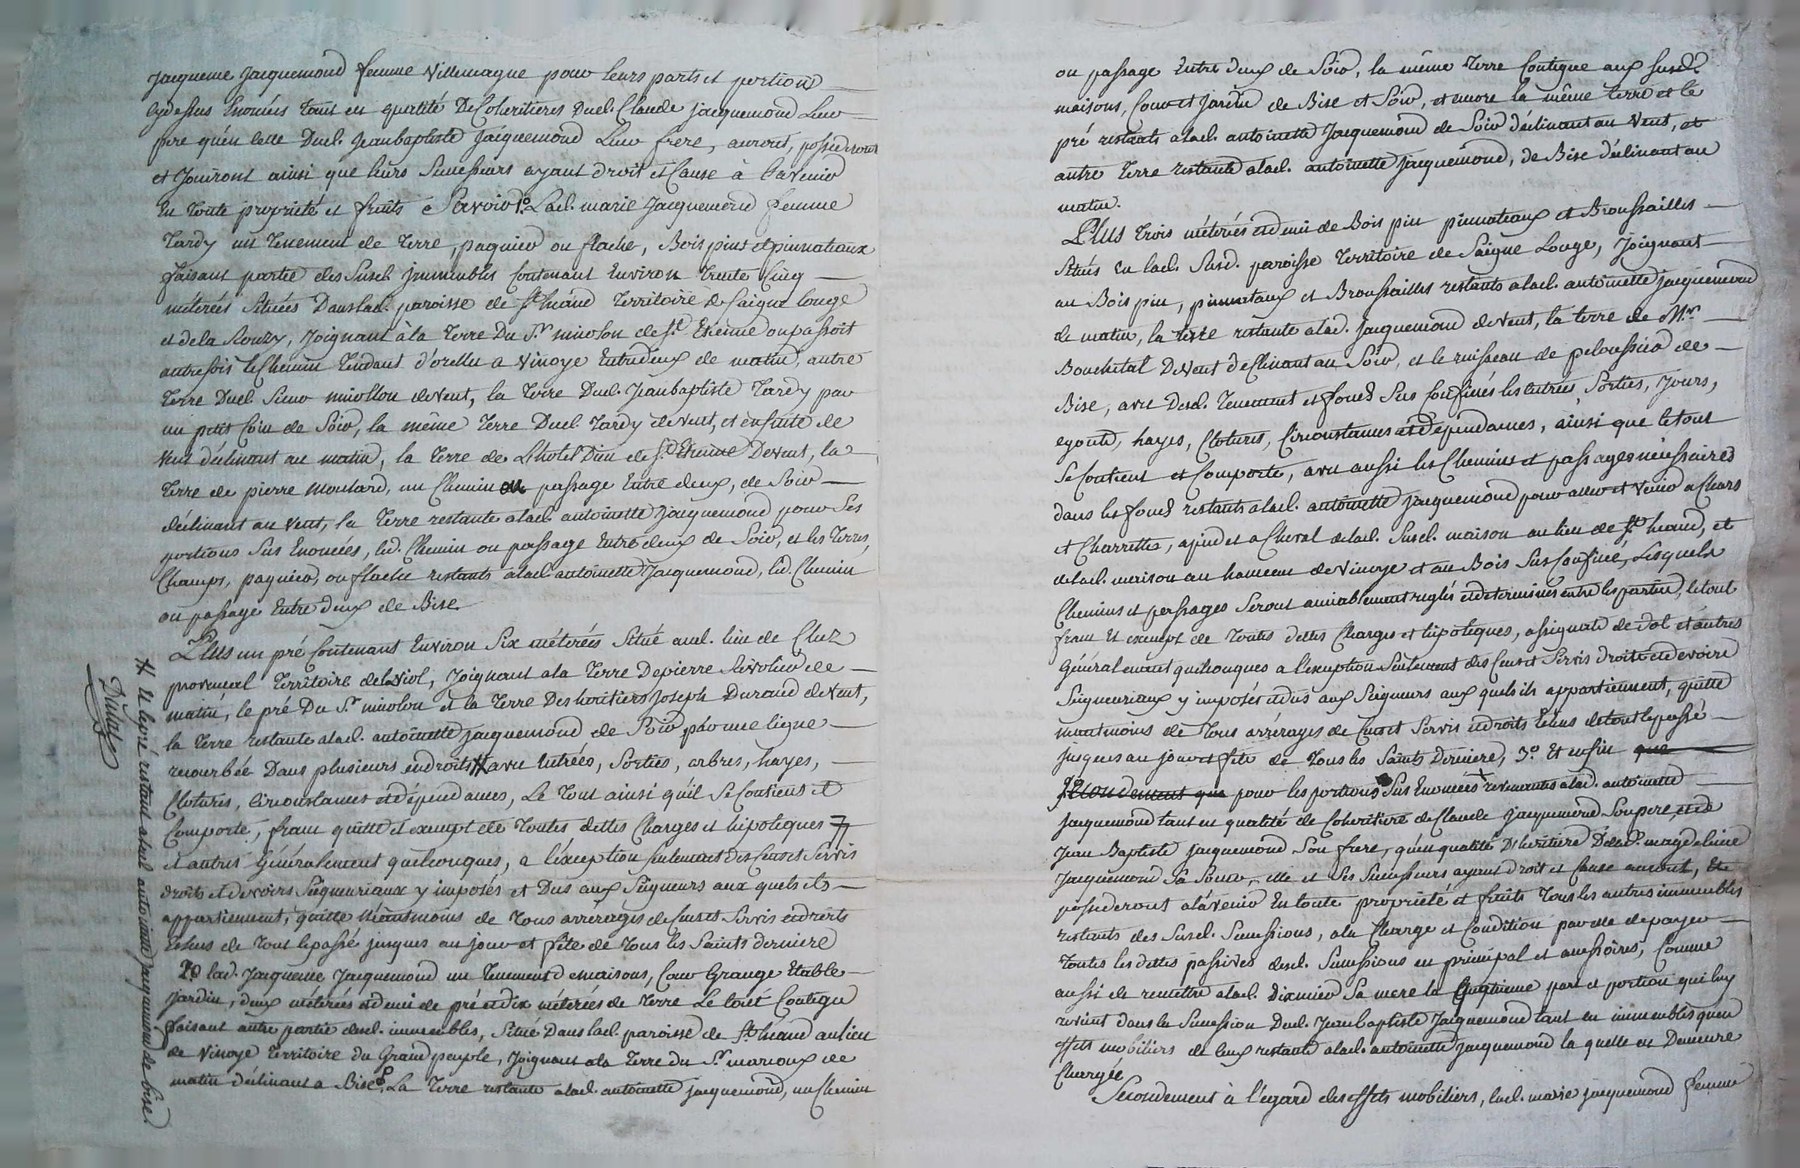 Jacqueme Jacquemond femme Villemagne pour leurs parts et portions
cydessus Enoncées tant en qualité De Coheritieres Dud. Claude Jacquemond Leur
pere qu'en celle Dud. Jeanbaptiste Jacquemond Leur frere, auront, possederont
et Jouiront ainsi que leurs Successeurs ayant droit et Cause à l'avenir
En toute propriété et fruits Savoir 1º. Lad. marie Jacquemond femme
Tardy un Tenement de Terre, paquier ou flache, Bois pins et pinnateaux
faisant partie des Susd. immeubles Contenant Environ trente Cinq
méterées Situées Dans lad. paroisse de St. heand Territoire de Saigne longe
et de la Rouzy, Joignant à la Terre Du Sr. minolon de St. Etienne ou passoit
autrefois le Chemin Tendant d'orelle a Vinoye Entredeux de matin, autre
Terre Dud. Sieur de Vent, la Terre Dud. Jeanbaptiste Tardy par
un petit Coin de Soir, la même Terre Dud. Tardy de Vent, et ensuite de
Vent déclinant au matin, la Terre de L'hotel Dieu de St. Etienne De vent, la
Terre de pierre Moulard, un Chemin ou passage Entre deux, de Soir
déclinant au Vent, la Terre restante alad. antoinette Jacquemond pour Ses
portions Sus Enoncées, led. Chemin ou passage Entre deux de Soir, et les Terres,
Champs, paquier, ou flache restants alad. antoinette Jacquemond, led. Chemin
ou passage Entre deux de Bise.
Plus un pré Contenant Environ Six méterées Situé aud. lieu de Cluz
provencal Territoire de laviol, Joignant ala Terre De pierre Revolier de
matin, le pré Du Sr. minolon et la Terre Des heritiers Joseph Durand de Vent,
la Terre restante alad. antoinette Jacquemond de Soir, par une ligne
recourbée Dans plusieurs endroits # avec Entrées, Sorties, arbres, hayes,
Clotures, Circonstances et dépendances, Le Tout ainsi qu'il Se Contient et
Comporte, franc quitte et exempt de toutes dettes Charges et hipoteques
et autres Généralement quelconques, a l'exception Seulement Des Cens et Servis
droits et devoirs Seigneuriaux y imposés et Dus aux Seigneurs aux quels ils
appartiennent, quitte Néantmoins de Tous arrérages de Cens et Servis et droits
Echus de Tout le passé jusques au jour et fête de tous les Saints derniere
2º. lad. Jacqueme Jacquemond un Tenement de maisons, Cour Grange Etable
Jardin, deux méterées et demie de pré et dix méterées de Terre Le tout Contigu
faisant autre partie desd. immeubles, Situé Dans lad. paroisse de St. heand au lieu
de Vinoye Territoire du Grand peuple, Joignant ala Terre du Sr. marcoux de
matin déclinant a Bise, La Terre restante alad. antoinette Jacquemond, un Chemin
# et le pré restant alad. antoinette jacquemond de bise.
ou passage Entre deux de Soir, la même Terre Contigue aux Susd.
maisons, Cour et Jardin de Bise et Soir, et encore la même terre et le
pré restants alad. antoinette Jacquemond de Soir déclinant au Vent, et
autre Terre restante alad. antoinette Jacquemond, de Bise déclinant au
matin.
Plus trois méterées et demie de Bois pin pinnateaux et Broussailles
Situés en lad. Susd. paroisse Territoire de Saigne Longe, Joignant
au Bois pin, pinnateaux et Broussailles restants alad. antoinette Jacquemond
de matin, la terre restante alad. Jacquemond de Vent, la terre de Mr.
Bouchetal De Vent déclinant au Soir, et le ruisseau de peloussier de
Bise, avec Desd. Tenement et fonds Sus Confinés les Entrées, Sorties, Jours,
egouts, hayes, Clotures, Circonstances et dépendances, ainsi que le tout
Se Contient et Comporte, avec aussi les Chemins et passages nécessaires
dans les fonds restants alad. antoinette Jacquemond pour aller et Venir a Chars
et Charrettes, a pied et a Cheval delad. Susd. maison au lieu de St. heand, et
delad. maison au hameau de Vinoye et au Bois Sus Confiné, Lesquels
Chemins et passages Seront amiablement reglés et determinés entre les parties, le tout
franc et exempt de Toutes dettes Charges et hipoteques, assignats de dot et autres
Généralement quelconques a l'exception Seulement des Cens et Servis droits et devoirs
Seigneuriaux y imposés et dus aux Seigneurs aux quels ils appartiennent, quitte
neantmoins de Tous arrérages de Cens et Servis et droits Echus de tout le passé
jusques au jour et fête de Tous les Saints Derniere, 3º. Et enfin que
Secondement que pour les portions Sus Enoncées revenantes alad. antoinette
Jacquemond tant en qualité de Coheritiere de Claude Jacquemond Son pere, et de
Jean Baptiste Jacquemond Son frere, qu'en qualité D'heritiere De lad. magdelaine
Jacquemond Sa Soeur, elle et Ses Successeurs ayant droit et Cause auront, Et
possederont a l'avenir En toute propriété et fruits Tous les autres immeubles
restants des Susd. Successions, ala Charge et Condition par elle de payer
toutes les dettes passives desd. Successions en principal et accessoires, Comme
aussi de remettre alad. Dixmier Sa mere la Cinquieme part et portion qui luy
revient dans la Succession Dud. Jean baptiste Jacquemond tant en immeubles qu'en
effets mobiliers de ceux restants alad. antoinette Jacquemond la quelle en Demeure
Chargée
Secondement à l'égard des effets mobiliers, lad. marie jacquemond femme